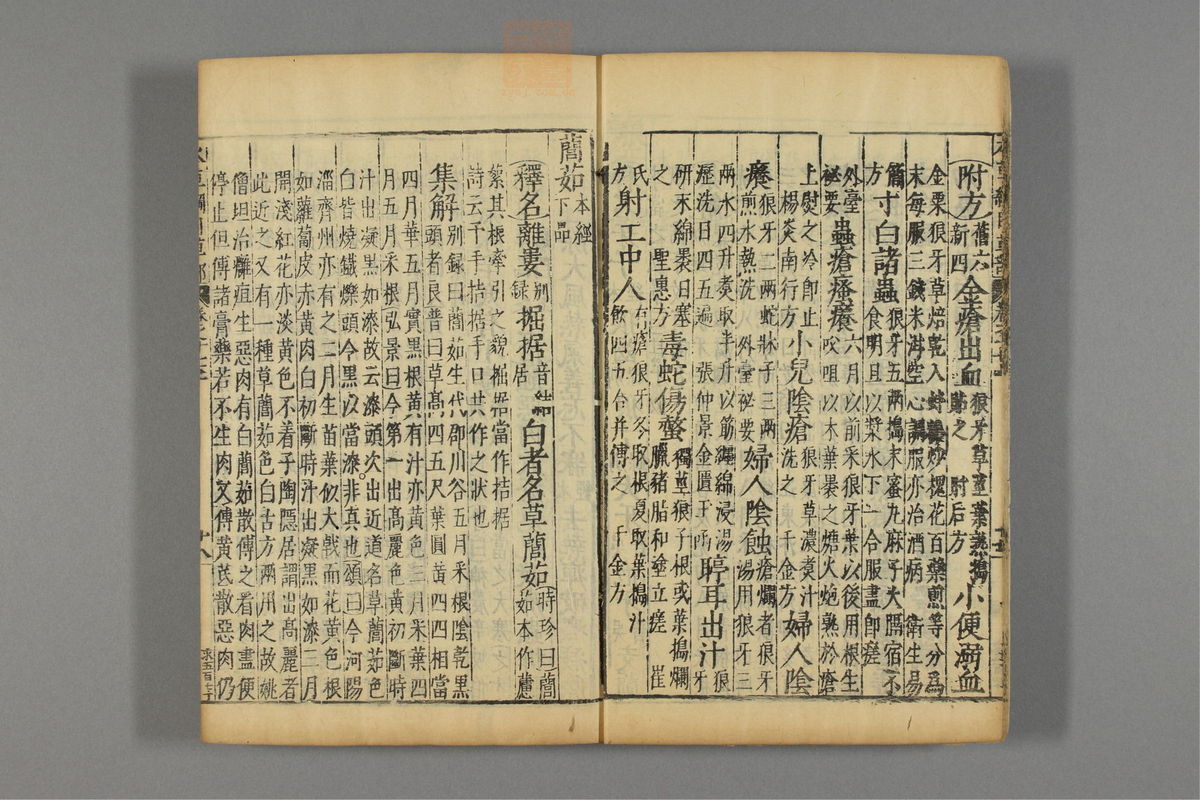 附方舊六新四金瘡出血狼牙草莖葉熟搗貼之 肘后方小便溺血
金粟狼牙草焙乾入蚌粉炒槐花百藥煎等分爲
末每服三錢米泔空心調服亦治酒病 衛生易
簡方寸白諸蟲狼牙五兩搗末蜜丸麻子大隔宿不食明旦以漿水下一合服盡卽瘥
外臺秘要蟲瘡瘙癢六月以前采狼牙葉以後用根生㕮咀以木葉裹之煻火炮熟於瘡
上熨之冷卽止 楊炎南行方小兒陰瘡狼牙草濃煮汁洗之 千金方婦人陰
癢狼牙二兩蛇牀子三兩煎水熱洗 外臺秘要婦人陰蝕瘡爛者狼牙湯用狼牙三
兩水四升煮取半升以筋纏綿浸湯瀝洗日四五遍 張仲景金匱玉函聤耳出汁狼牙
研末綿裹日塞之 聖惠方毒蛇傷螫獨莖狼牙根或葉搗爛臘豬脂和塗立瘥 崔
氏方射工中人有瘡狼牙冬取根夏取葉搗汁飲四五合并傅之 千金方
藘茹本經下品
釋名離婁别録掘据音結居白者名草藘茹時珍曰藘茹本作藘
蕠其根牽引之貌掘据當作拮据
詩云予手拮据手口共作之狀也
集解别録曰藘茹生代郡川谷五月采根陰乾黑頭者良普曰草高四五尺葉圓黄四四相當
四月華五月實黑根黄有汁亦黄色三月采葉四
月五月采根弘景曰今第一出高麗色黄初斷時
汁出凝黑如漆故云漆頭次出近道名草藘茹色
白皆燒鐵爍頭令黑以當漆非真也頌曰今河陽
淄齊州亦有之二月生苗葉似大戟而花黄色根
如蘿蔔皮赤黄肉白初斷時汁出凝黑如漆三月
開淺紅花亦淡黄色不着子陶隱居謂出高麗者
此近之又有一種草藘茹色白古方兩用之故姚
僧坦治癰疽生惡肉有白藘茹散傅之看肉盡便
停止但傅諸膏藥若不生肉又傅黄芪散惡肉仍